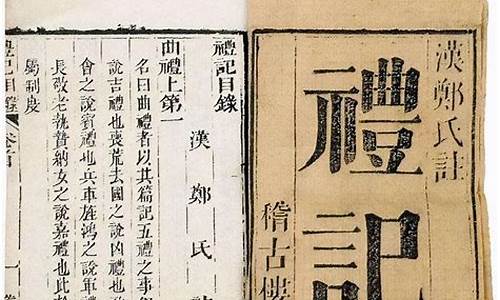 漢鄭氏註
禮記
稽古樓
禮記目錄
漢鄭氏
曲禮上第一
名曰曲禮者以其篇記五禮之事
說吉禮也喪荒去國之說凶禮也
會之說賓禮也兵車旌鴻之說軍禮
長敬老執贄納女之說嘉禮也此於
屬制度
禮記目錄